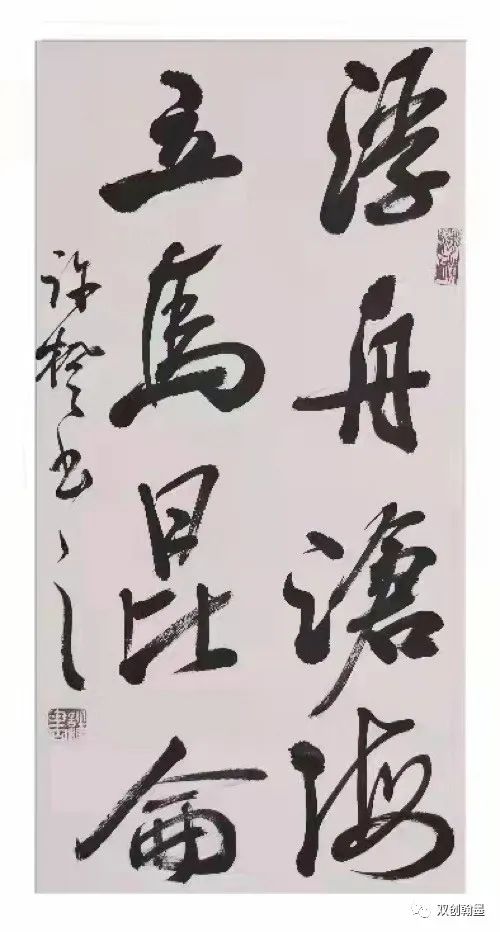 浮舟滄海
立馬昆侖
许楚书
双创翰墨